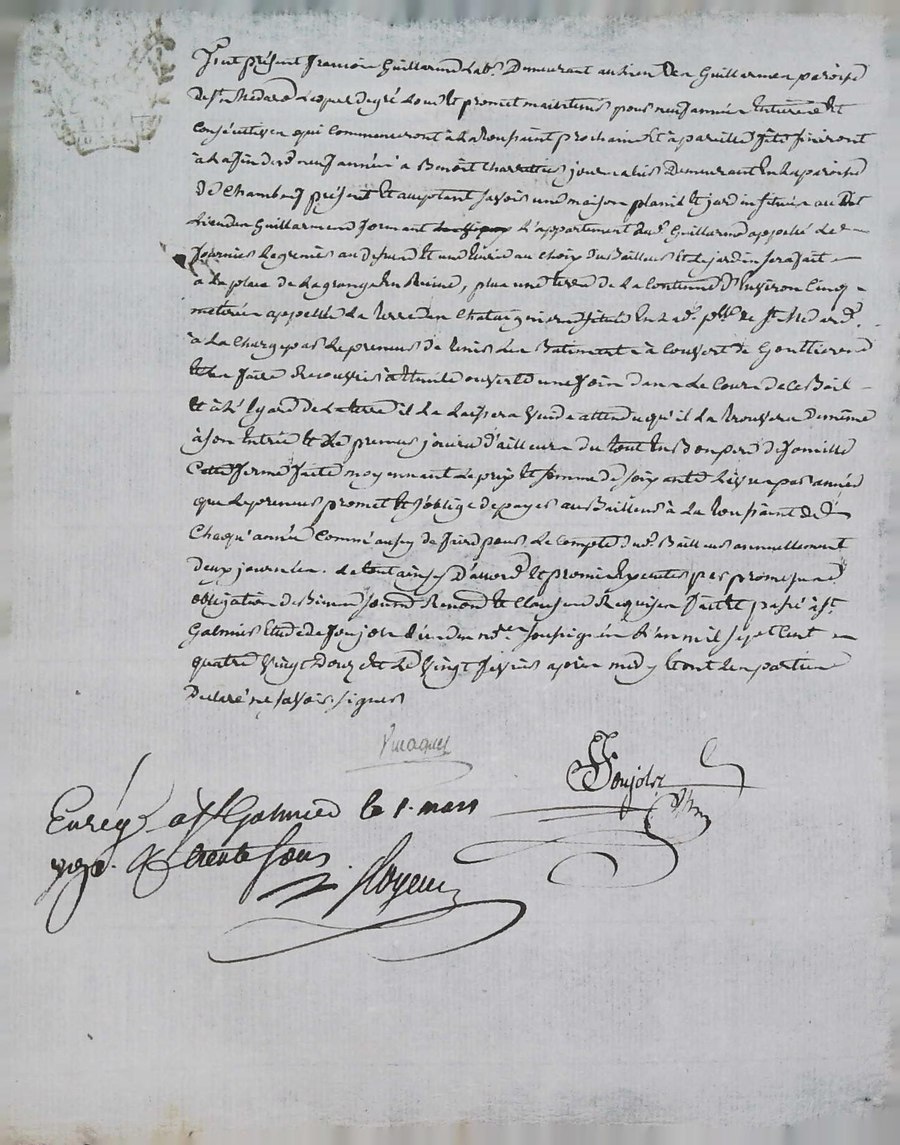 fut présent francois Guillarmd Lab.r Demeurant au lieu den Guillarmen paroisse
de st medard Lequel de gré Loue et promet maintenir pour neuf année entiere et
consécutives qui commenceront à la toussaint prochaine et à pareille fête finiront
à la fin des d. neuf année à Benoît Charretier journalier Demeurant en la paroisse
de Chambeuf présent et acceptant savoir une maison planit et jardin située au dit
Lieu den Guillarmend formant L'appartement du d. Guillarmd appellé Le
fournier Le grenier au dessus et une au choix du Bailleur et le jardin sera fait
à la place de la grange en Ruine, plus une terre de la Contenue d'Environ Cinq
meterée appellée La terre den Chataignier située en La d. p.sse de St. Medard.
à la Charge par Le preneur de tenir Les Batiment à Couvert de Gouttieres
et en faire recouvrir à thuile ouverte une fois dans Le Cours de Ce Bail
et à L'égard de La terre il La laissera vuide attendu qu'il La trouvera de même
à son Entrée et Le preneur jouira d'ailleurs du tout En Bon pere de famille
Cette ferme faite moyennant Le prix et somme de soixante Livres par année
que Le preneur promet et s'oblige de payer au Bailleur à La toussaint de
Chaqu'année Comm'aussy de faire pour Le Compte du d. Bailleur annuellement
deux journées. Le tout ainsy D'accord et promis Executer par promesse
obligation de Biens soumd. Renond. et Clauses Requises fait et passé à St.
Galmier Etude de Soujolz L'un des no.res soussignés L'an mil sept Cent
quatre vingt douze et Le vingt fevrier après midy et ont Les parties
Declaré ne savoir signer
Soujolz
Enrég. à St Galmier le 1. mars
1792. R. trente sous